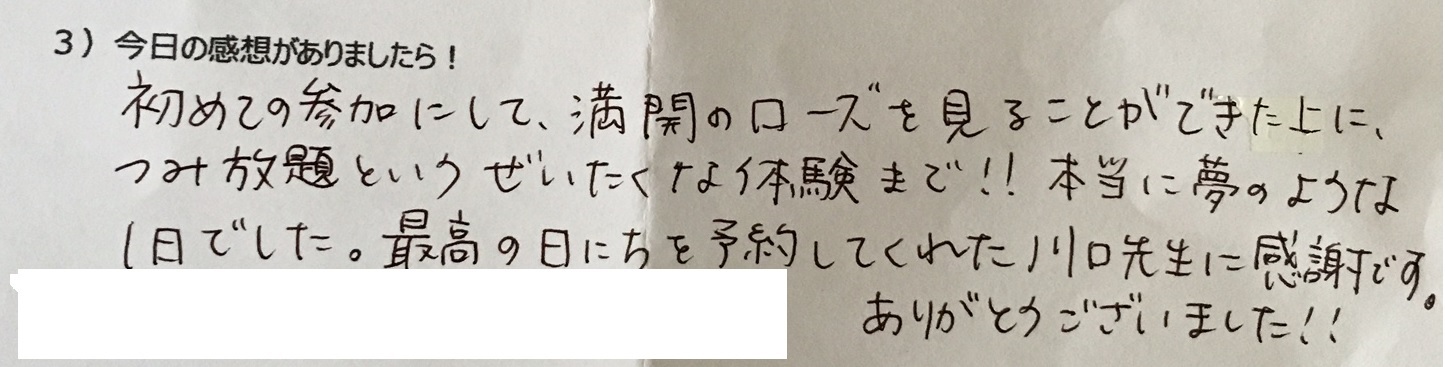 3）今日の感想がありましたら！
初めての参加にして、満開のローズを見ることができた上に、
つみ放題というぜいたくな体験まで!! 本当に夢のような
1日でした。最高の日にちを予約してくれた川口先生に感謝です。
ありがとうございました!!